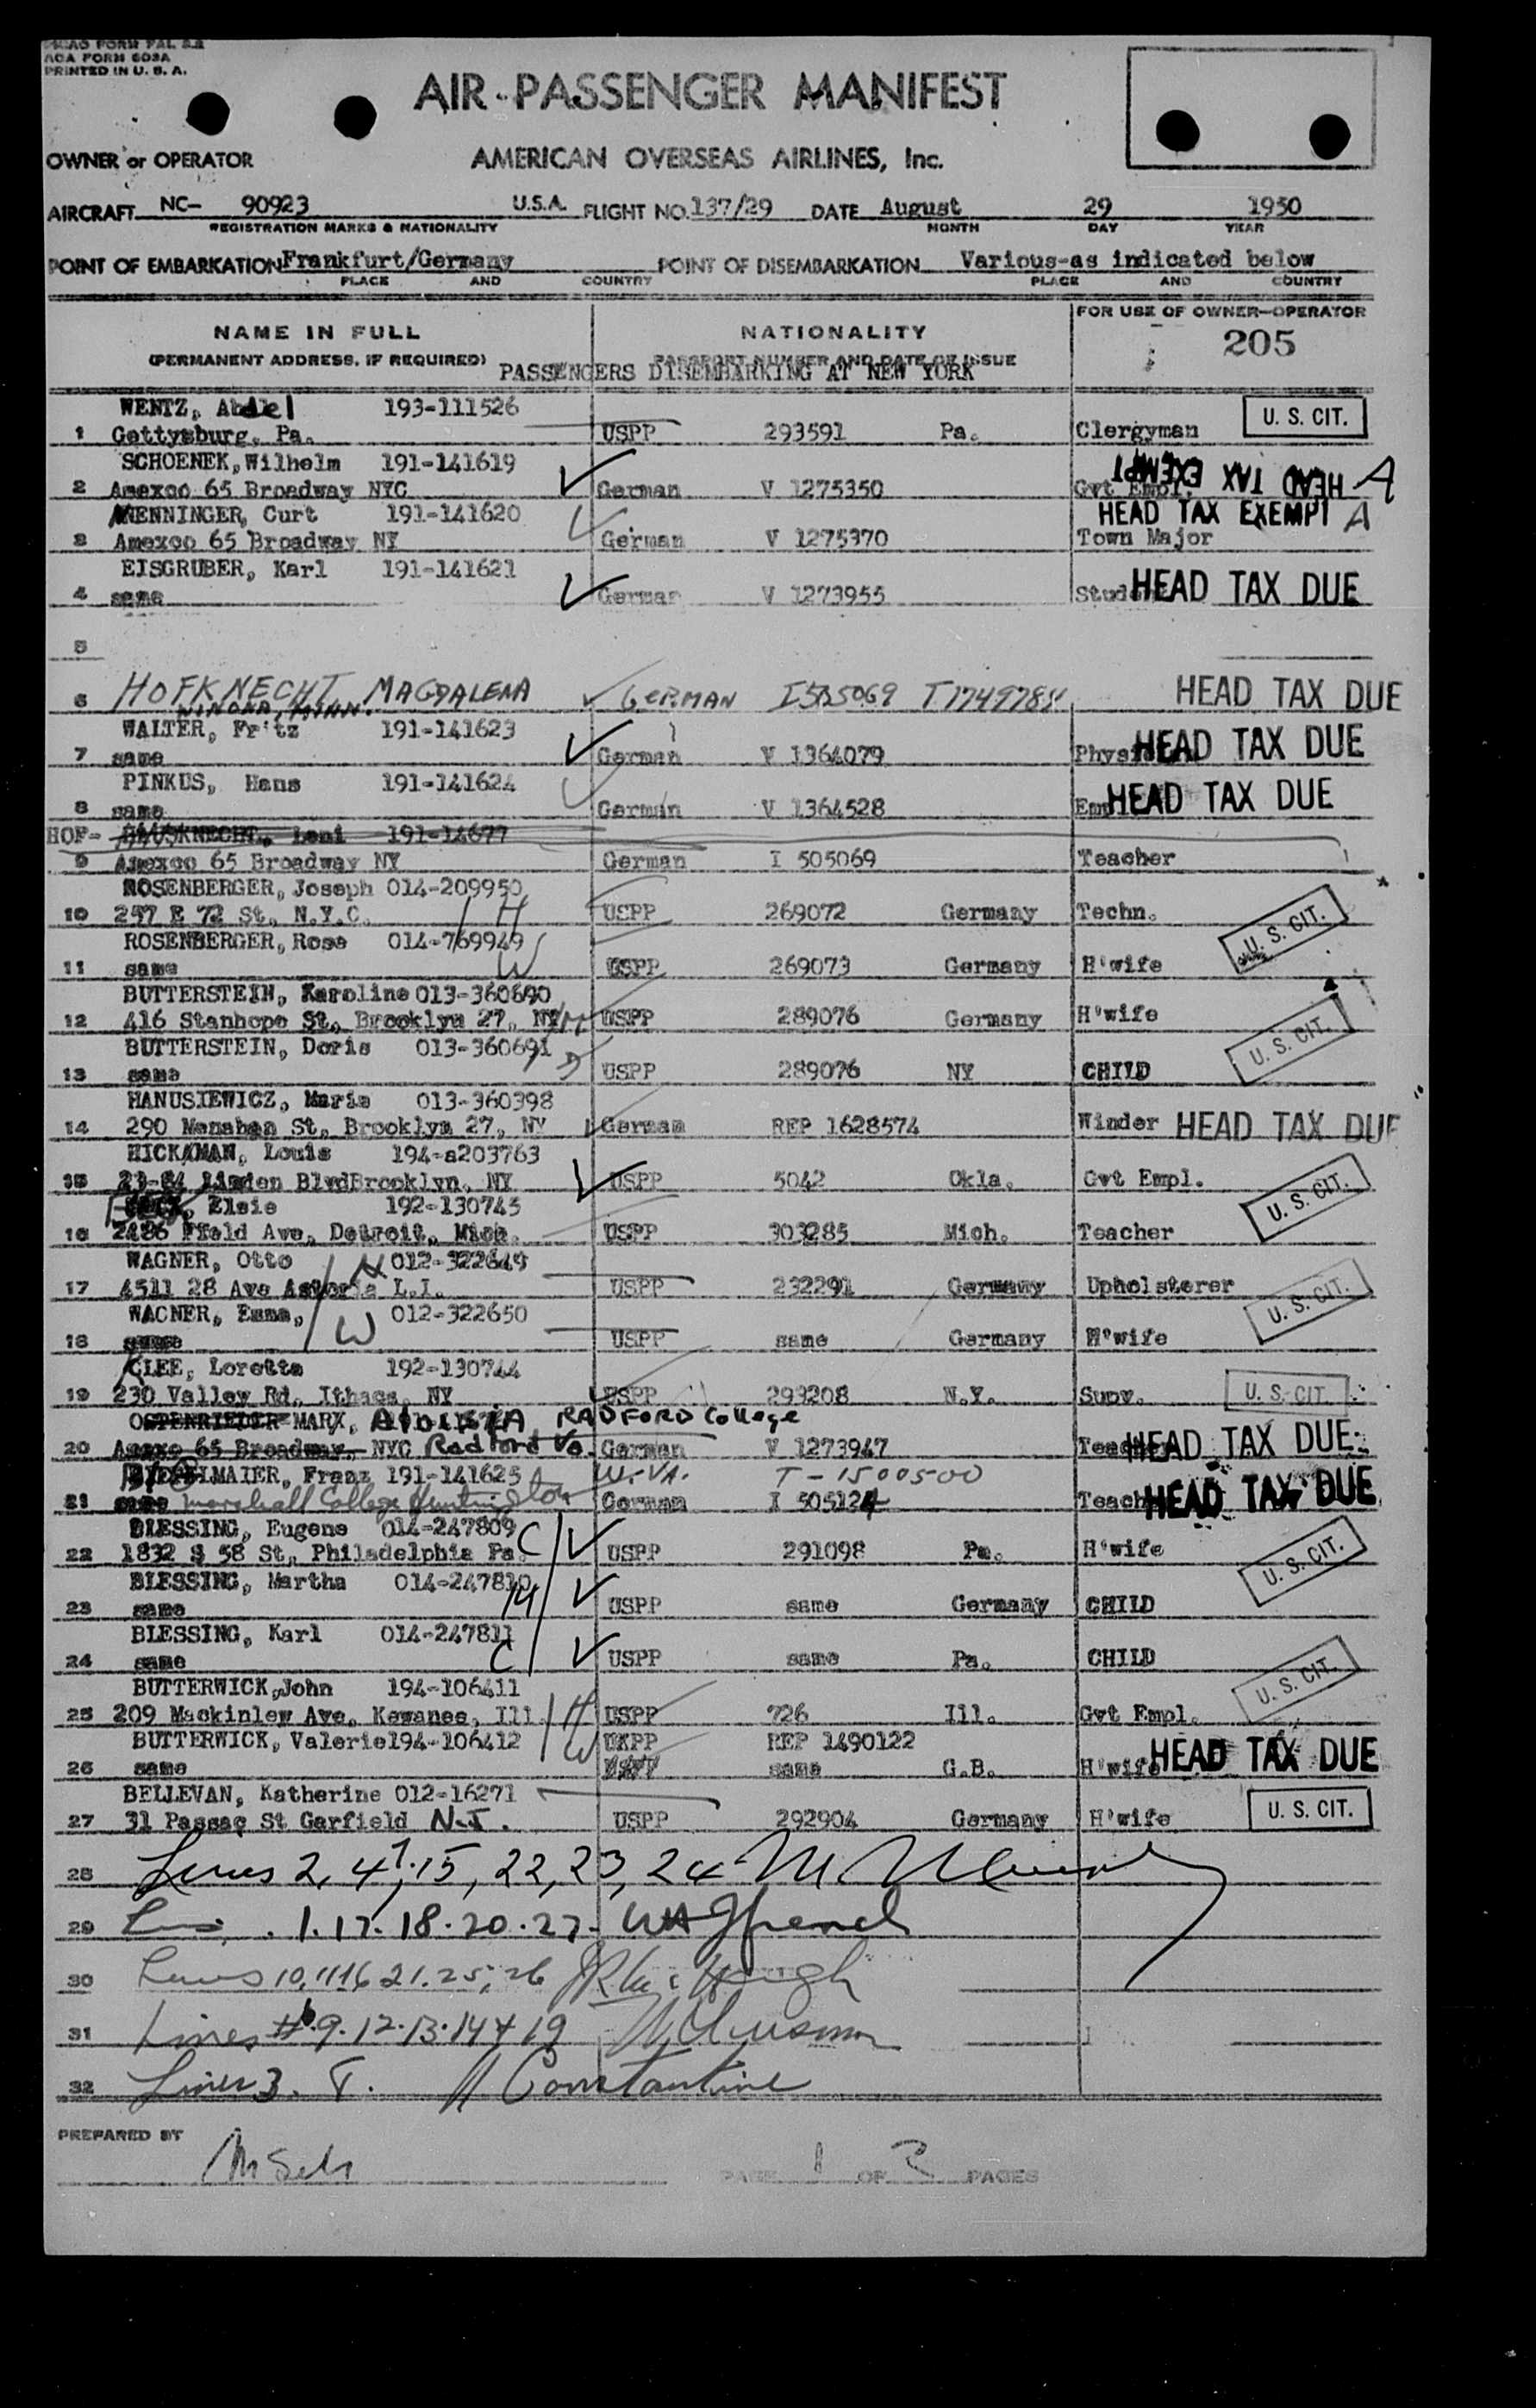 ICAO FORM PAL 2.2
ACA FORM 603A
PRINTED IN U. S. A.
AIR-PASSENGER MANIFEST
OWNER or OPERATOR AMERICAN OVERSEAS AIRLINES, Inc.
AIRCRAFT NC- 90923 U.S.A. FLIGHT NO. 137/29 DATE August 29 1950
REGISTRATION MARKS & NATIONALITY MONTH DAY YEAR
POINT OF EMBARKATION Frankfurt/Germany POINT OF DISEMBARKATION Various-as indicated below
PLACE AND COUNTRY PLACE AND COUNTRY
FOR USE OF OWNER-OPERATOR
NAME IN FULL NATIONALITY 205
(PERMANENT ADDRESS, IF REQUIRED) PASSPORT NUMBER AND DATE OF ISSUE
PASSENGERS DISEMBARKING AT NEW YORK
WENTZ, Abdel 193-111526 U. S. CIT.
1 Gettysburg, Pa. USPP 293591 Pa. Clergyman
SCHOENEK, Wilhelm 191-141619 HEAD TAX EXEMPT A
2 Amexco 65 Broadway NYC German V 1275350 Gvt Empl.
MENNINGER, Curt 191-141620 HEAD TAX EXEMPT A
3 Amexco 65 Broadway NY German V 1275370 Town Major
EISGRUBER, Karl 191-141621
4 same German V 1273955 Student HEAD TAX DUE
5
6 HOFKNECHT, MAGDALENA GERMAN I505069 T1749788 HEAD TAX DUE
WINONA, MINN.
WALTER, Fritz 191-141623
7 same German V 1364079 HEAD TAX DUE
PINKUS, Hans 191-141624
8 same German V 1364528 HEAD TAX DUE
HOF- Leni 191-14677
9 Amexco 65 Broadway NY German I 505069 Teacher
ROSENBERGER, Joseph 014-209950
10 257 E 72 St., N.Y.C. H USPP 269072 Germany Techn.
ROSENBERGER, Rose 014-769949 U. S. CIT.
11 same W USPP 269073 Germany H'wife
BUTTERSTEIN, Karoline 013-360690
12 416 Stanhope St., Brooklyn 27, NY M USPP 289076 Germany H'wife
BUTTERSTEIN, Doris 013-360691 U. S. CIT.
13 same D USPP 289076 NY CHILD
HANUSIEWICZ, Maria 013-360398
14 290 Menahan St, Brooklyn 27, NY German REP 1628574 Winder HEAD TAX DUE
HICKMAN, Louis 194-a203763
15 23-84 Linden BlvdBrooklyn, NY USPP 5042 Okla. Gvt Empl. U. S. CIT.
Elsie 192-130745
16 2486 Ffeld Ave, Detroit, Mich. USPP 303285 Mich. Teacher
WAGNER, Otto H 012-322649
17 4511 28 Ave Astoria L.I. USPP 232291 Germany Upholsterer
WAGNER, Emma, W 012-322650 U. S. CIT.
18 same USPP same Germany H'wife
KLEE, Loretta 192-130744
19 230 Valley Rd, Ithaca, NY USPP 293208 N.Y. Supv. U. S. CIT.
OSTENRIEDER MARX, RADFORD College
20 Amexo 65 Broadway, NYC Radford Va. German V 1273947 HEAD TAX DUE
Franz 191-141625 W.VA. T-1500500
21 same Marshall College Huntington German I 505124 HEAD TAX DUE
BLESSING, Eugene 014-247809
22 1832 S 58 St, Philadelphia Pa. C USPP 291098 Pa. H'wife
BLESSING, Martha 014-247810 U. S. CIT.
23 same M USPP same Germany CHILD
BLESSING, Karl 014-247811
24 same C USPP same Pa. CHILD
BUTTERWICK, John 194-106411 U. S. CIT.
25 209 Mackinlew Ave, Kewanee, Ill. H USPP 726 Ill. Gvt Empl.
BUTTERWICK, Valerie 194-106412 W UKPP REP 1490122
26 same same G.B. H'wife HEAD TAX DUE
BELLEVAN, Katherine 012-16271
27 31 Passac St Garfield N.J. USPP 292904 Germany H'wife U. S. CIT.
28 Lines 2, 4, 7, 15, 22, 23, 24
29 1. 17. 18. 20. 27.
30 Lines 10, 11 16 21. 25, 26
31 Lines # 6. 9. 12. 13. 14 + 19
32 Lines 3. 8. Constantine
PREPARED BY
PAGE 1 OF 2 PAGES